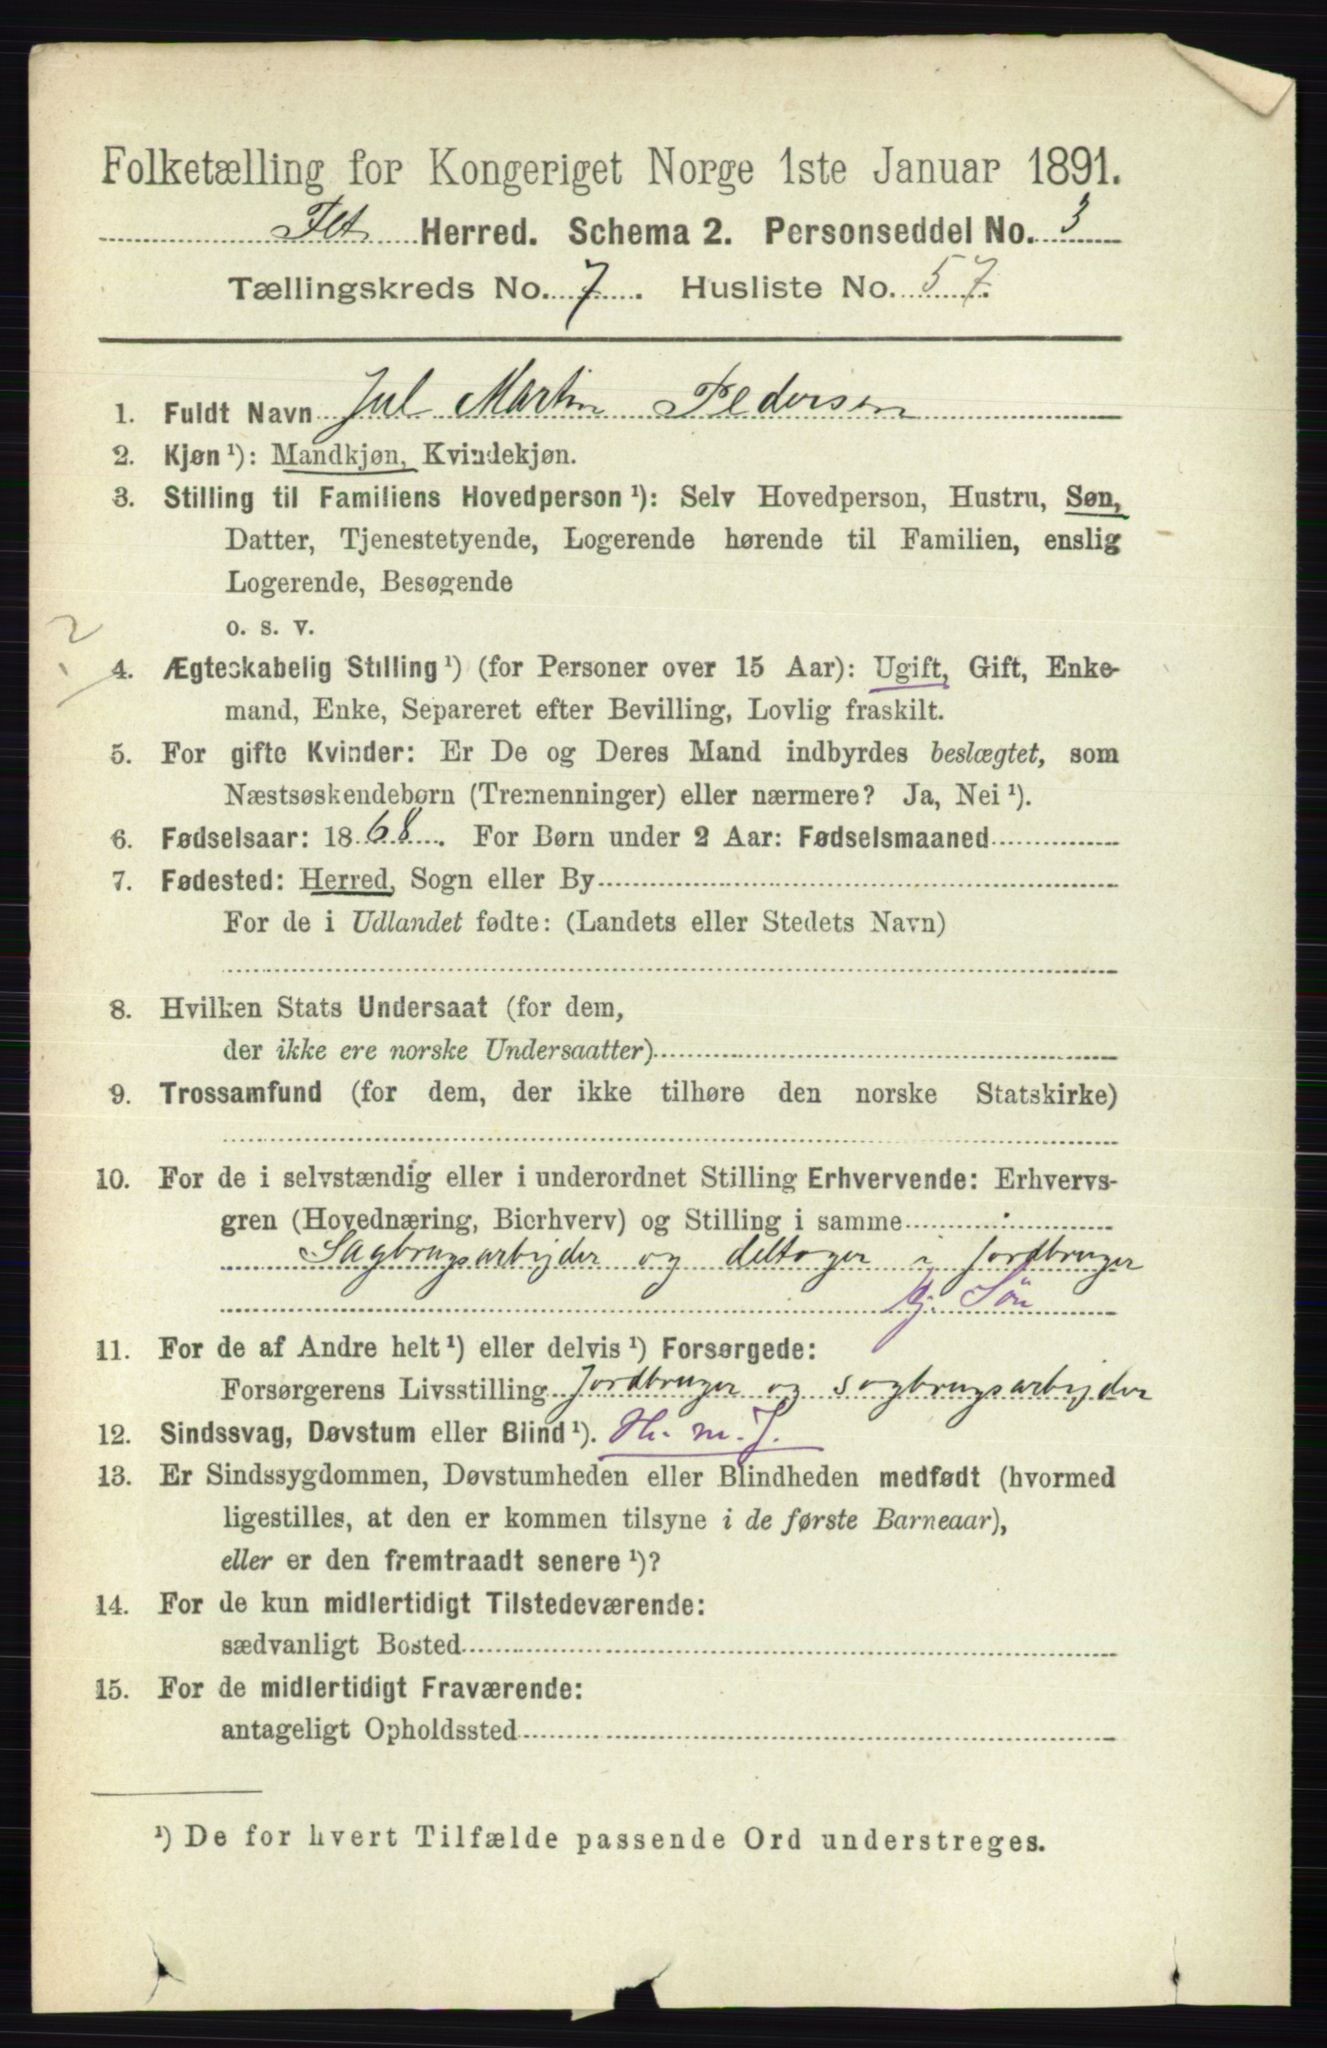 Folketælling for Kongeriget Norge 1ste Januar 1891.
Flt Herred. Schema 2. Personseddel No. 3
Tællingskreds No. 7. Husliste No. 57.
1. Fuldt Navn Jul Martin Pedersen
2. Kjøn ¹): Mandkjøn, Kvindekjøn.
3. Stilling til Familiens Hovedperson ¹): Selv Hovedperson, Hustru, Søn,
Datter, Tjenestetyende, Logerende hørende til Familien, enslig
Logerende, Besøgende
o. s. v.
2
4. Ægteskabelig Stilling ¹) (for Personer over 15 Aar): Ugift, Gift, Enke-
mand, Enke, Separeret efter Bevilling, Lovlig fraskilt.
5. For gifte Kvinder: Er De og Deres Mand indbyrdes beslægtet, som
Næstsøskendebørn (Tremenninger) eller nærmere? Ja, Nei ¹).
6. Fødselsaar: 1868. For Børn under 2 Aar: Fødselsmaaned
7. Fødested: Herred, Sogn eller By
For de i Udlandet fødte: (Landets eller Stedets Navn)
8. Hvilken Stats Undersaat (for dem,
der ikke ere norske Undersaatter)
9. Trossamfund (for dem, der ikke tilhøre den norske Statskirke)
10. For de i selvstændig eller i underordnet Stilling Erhvervende: Erhvervs-
gren (Hovednæring, Bierhverv) og Stilling i samme
Sagbrugsarbejder og deltager i Jordbruger
Søn
11. For de af Andre helt ¹) eller delvis ¹) Forsørgede:
Forsørgerens Livsstilling Jordbruger og sagbrugsarbejder
12. Sindssvag, Døvstum eller Blind ¹). H. m. J.
13. Er Sindssygdommen, Døvstumheden eller Blindheden medfødt (hvormed
ligestilles, at den er kommen tilsyne i de første Barneaar),
eller er den fremtraadt senere ¹)?
14. For de kun midlertidigt Tilstedeværende:
sædvanligt Bosted
15. For de midlertidigt Fraværende:
antageligt Opholdssted
¹) De for hvert Tilfælde passende Ord understreges.